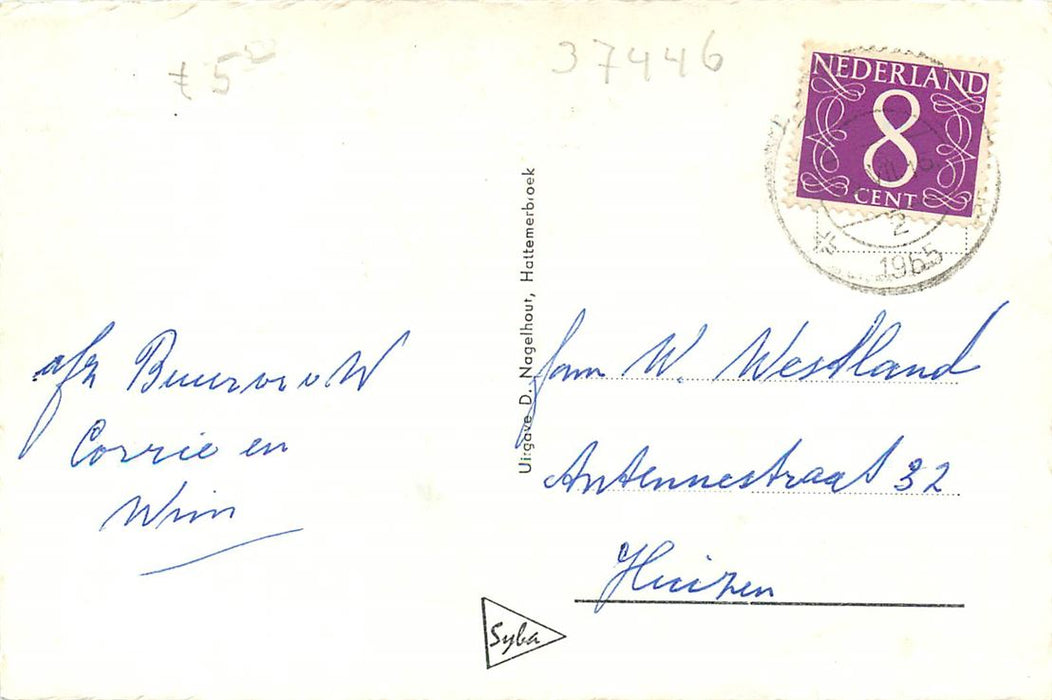 37446
NEDERLAND
8
CENT
1965
Uitgave D. Nagelhout, Hattemerbroek
afz Buurvrouw
Corrie en
Wim
Fam W. Westland
Antennestraat 32
Huizen
Syba